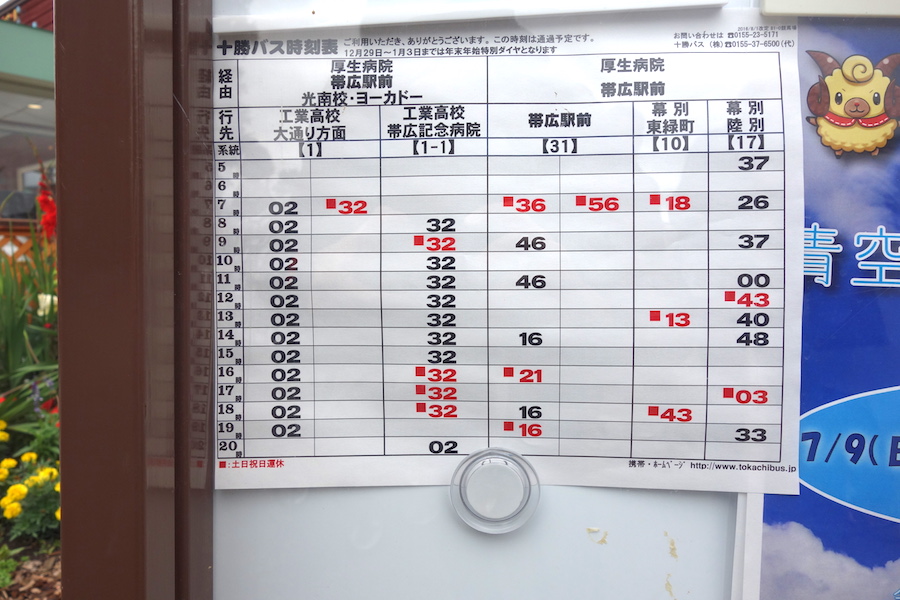 十勝バス時刻表 ご利用いただき、ありがとうございます。この時刻は通過予定です。
12月29日～1月3日までは年末年始特別ダイヤとなります
お問い合わせは ☎0155-23-5171
十勝バス（株）☎0155-37-6500(代)
経由 厚生病院 帯広駅前 光南校・ヨーカドー 厚生病院 帯広駅前
行先 工業高校 大通り方面 工業高校 帯広記念病院 帯広駅前 幕別 東緑町 幕別 陸別
系統 【1】 【1-1】 【31】 【10】 【17】
5時 37
6時
7時 02 ■32 ■36 ■56 ■18 26
8時 02 32
9時 02 ■32 46 37
10時 02 32
11時 02 32 46 00
12時 02 32 ■43
13時 02 32 ■13 40
14時 02 32 16 48
15時 02 32
16時 02 ■32 ■21
17時 02 ■32 ■03
18時 02 ■32 16 ■43
19時 02 ■16 33
20時 02
■:土日祝日運休 携帯・ホームページ http://www.tokachibus.jp
青空
7/9(日